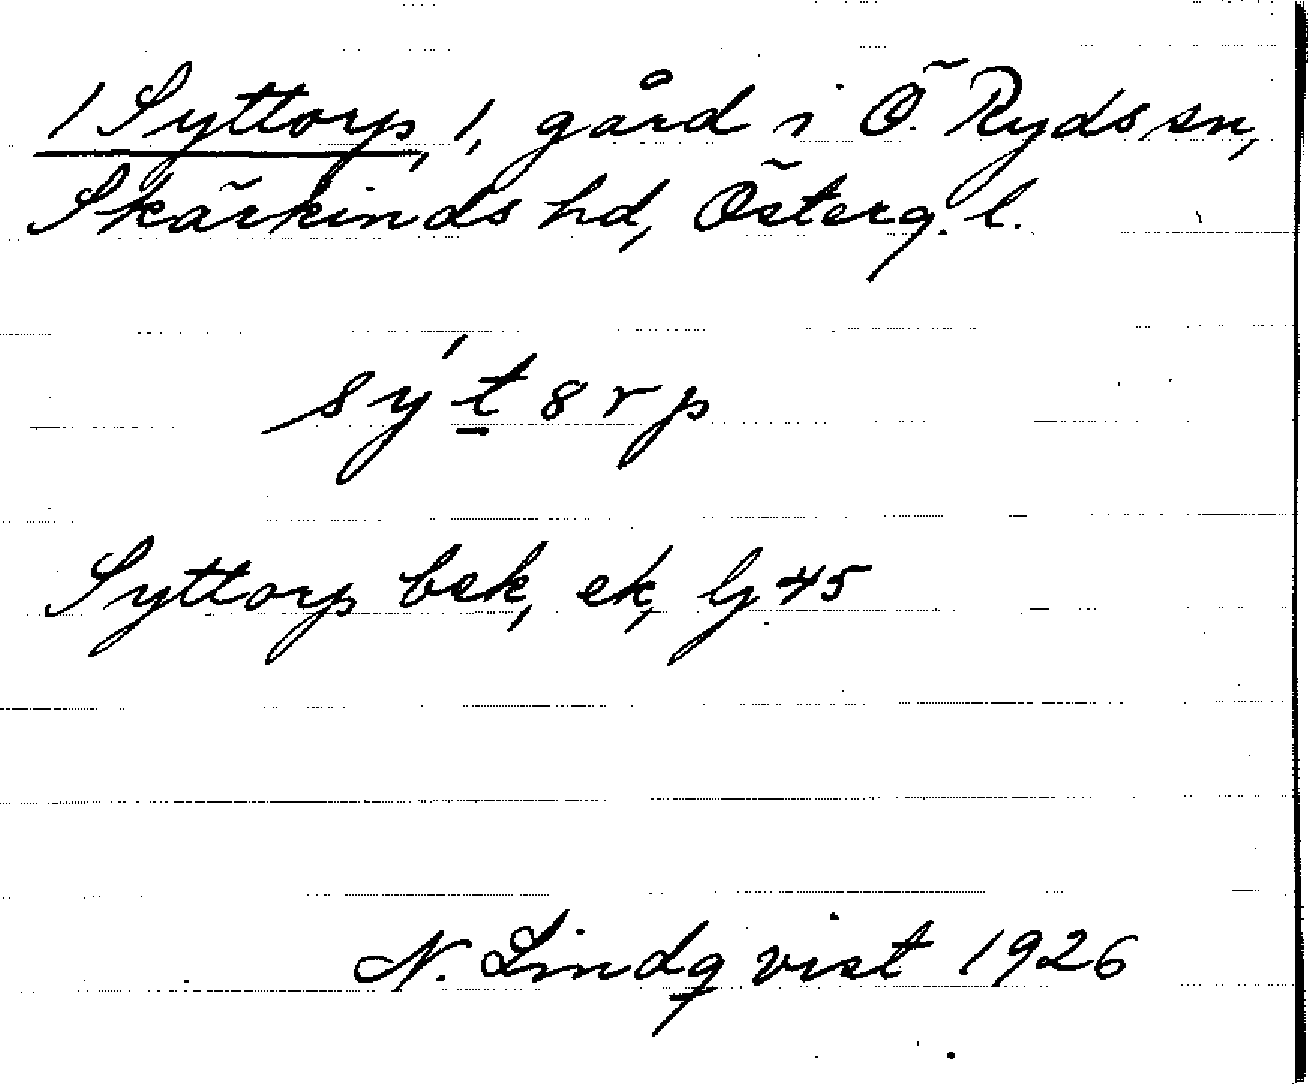 1 Syttorp, 1, gård i Ö. Ryds sn,
Skärkinds hd, Österg. l.
sy´t8rp
Syttorp bek, ek, lj 45
N. Lindqvist 1926